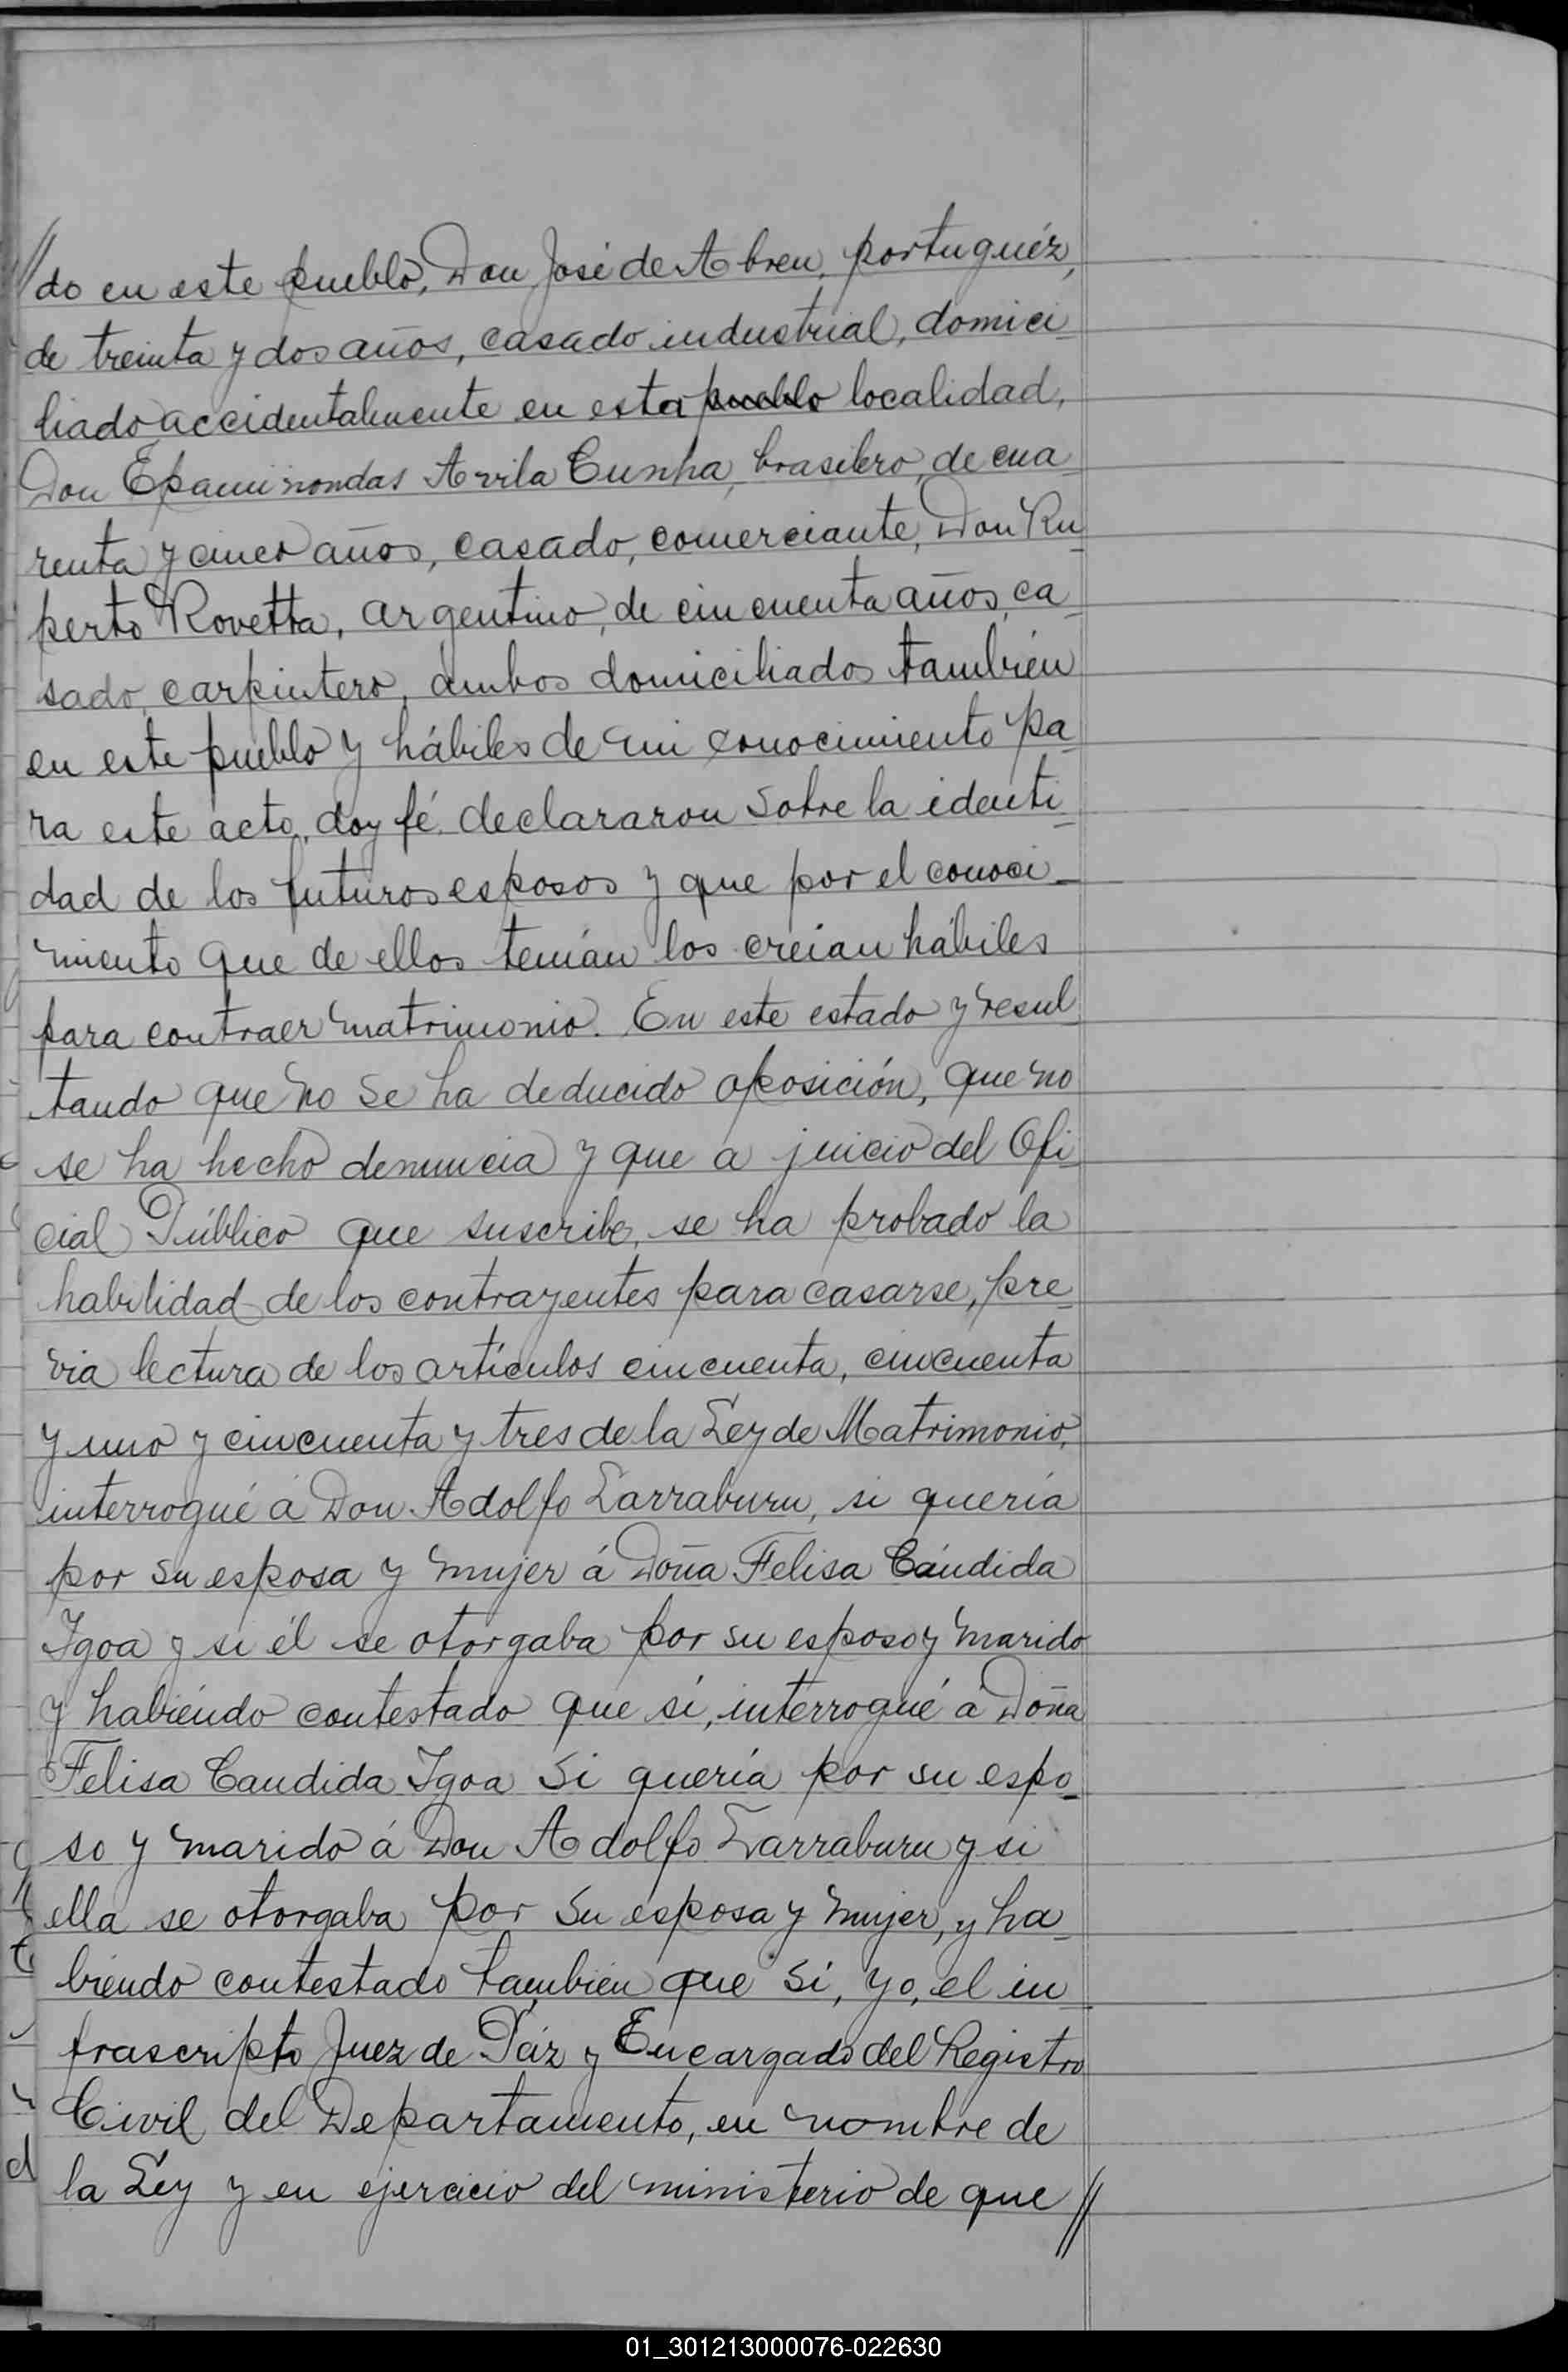 //do en este pueblo, Don José de Abreu, portuguéz,
de treinta y dos años, casado industrial, domici
liado accidentalmente en esta pueblo localidad,
Don Epaminondas Avila Cunha, brasilero, de cua
renta y cinco años, casado, comerciante, Don Ru
perto Rovetta, argentino, de cincuenta años, ca
sado, carpintero, ambos domiciliados también
en este pueblo y hábiles de mi conocimiento pa
ra este acto, doy fé, declararon sobre la identi
dad de los futuros esposos y que por el conoci-
miento que de ellos tenían los creían hábiles
para contraer matrimonio. En este estado y resul
tando que no se ha deducido oposición, que no
se ha hecho denuncia y que a juicio del Ofi
cial Público que suscribe, se ha probado la
habilidad de los contrayentes para casarse, pre
via lectura de los artículos cincuenta, cincuenta
y uno y cincuenta y tres de la Ley de Matrimonio,
interrogué á Don Adolfo Larraburu, si quería
por su esposa y mujer á Doña Felisa Cándida
Igoa y si él se otorgaba por su esposo y marido
y habiéndo contestado que sí, interrogué á Doña
Felisa Candida Igoa si quería por su espo
so y marido á Don Adolfo Larraburu y si
ella se otorgaba por su esposa y mujer, y ha
biendo contestado también que sí, yo, el in
frascripto Juez de Páz y Encargado del Registro
Civil del Departamento, en nombre de
la Ley y en ejercicio del ministerio de que//
01_301213000076-022630